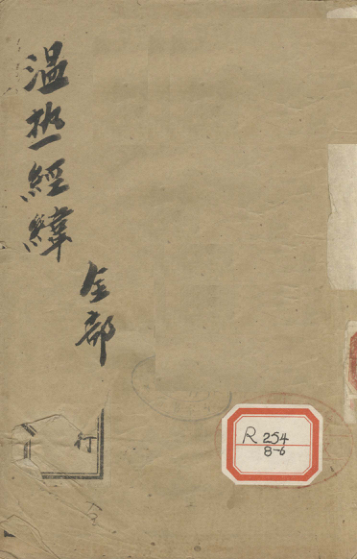 温热經緯
全部
行
R 254
8-6